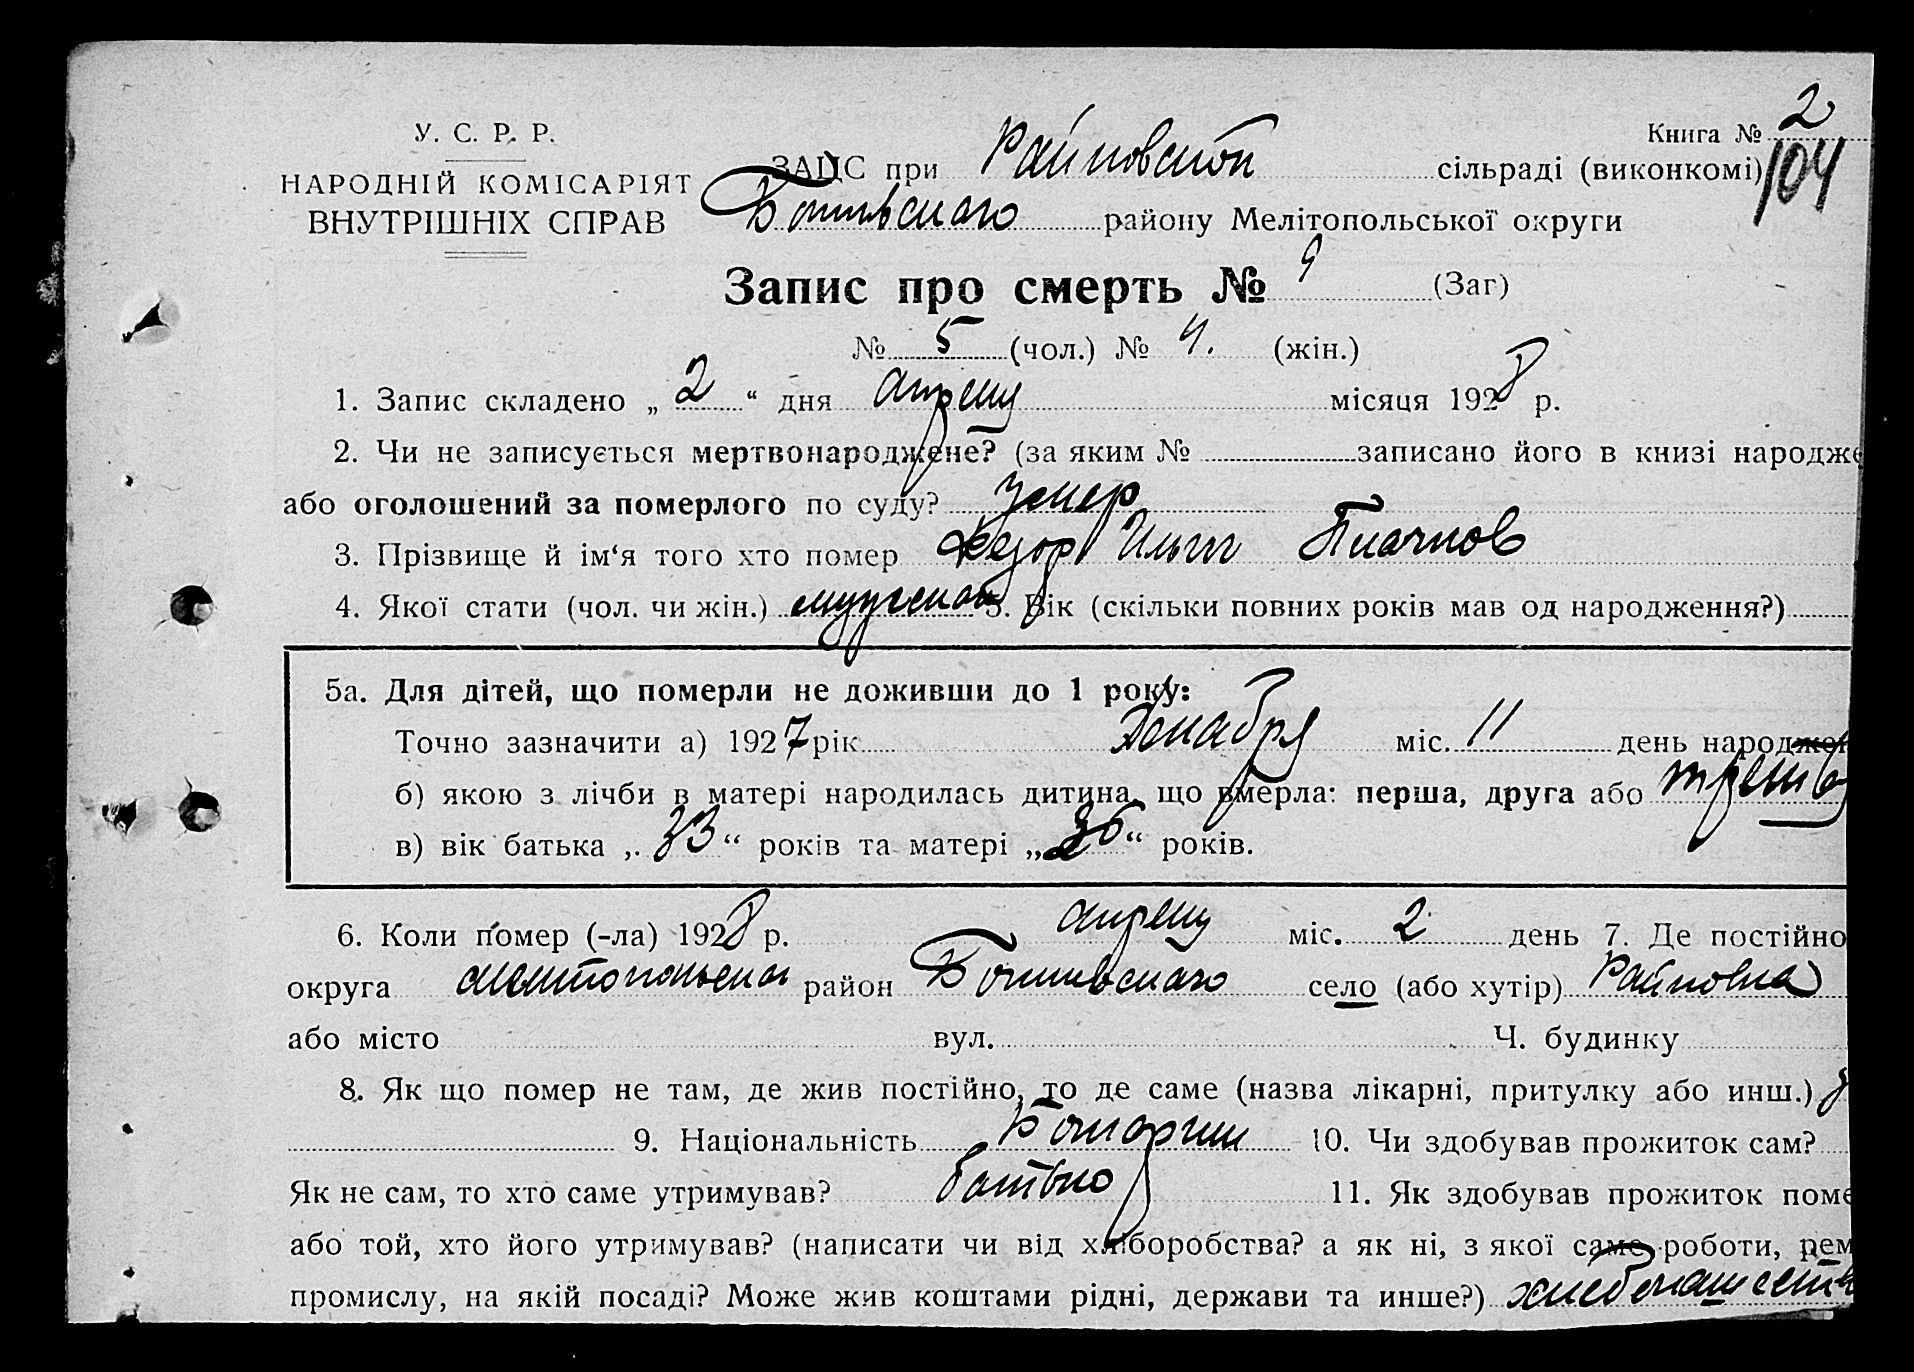 Книга № 2
104
У. С. Р. Р.
НАРОДНІЙ КОМІСАРІЯТ
ВНУТРІШНІХ СПРАВ
ЗАЦС при Райновской сільраді (виконкомі)
Ботиевского району Мелітопольської округи
Запис про смерть № 9 (Заг)
№ 5 (чол.) № 4. (жін.)
1. Запис складено „ 2 “ дня апрелу місяця 1928 р.
2. Чи не записується мертвонароджене? (за яким № записано його в книзі народже
або оголошений за померлого по суду? умер
3. Прізвище й ім‘я того хто помер Федор Ильич Плачков
4. Якої стати (чол. чи жін.) мужской 5. Вік (скільки повних років мав од народження?)
5а. Для дітей, що померли не доживши до 1 року:
Точно зазначити а) 1927 рік Декабря міс. 11 день народжен
б) якою з лічби в матері народилась дитина, що вмерла: перша, друга або
в) вік батька „ 33 “ років та матері „ 36 “ років.
6. Коли помер (-ла) 1928 р. апрелу міс. 2 день 7. Де постійно
округа Мелитопольска район Ботиевского село (або хутір) Райновка
або місто вул. Ч. будинку
8. Як що помер не там, де жив постійно, то де саме (назва лікарні, притулку або инш.)
9. Національність Болгарин 10. Чи здобував прожиток сам?
Як не сам, то хто саме утримував? батько 11. Як здобував прожиток поме
або той, хто його утримував? (написати чи від хліборобства? а як ні, з якої саме роботи, рем
промислу, на якій посаді? Може жив коштами рідні, держави та инше?) хлебопашеств